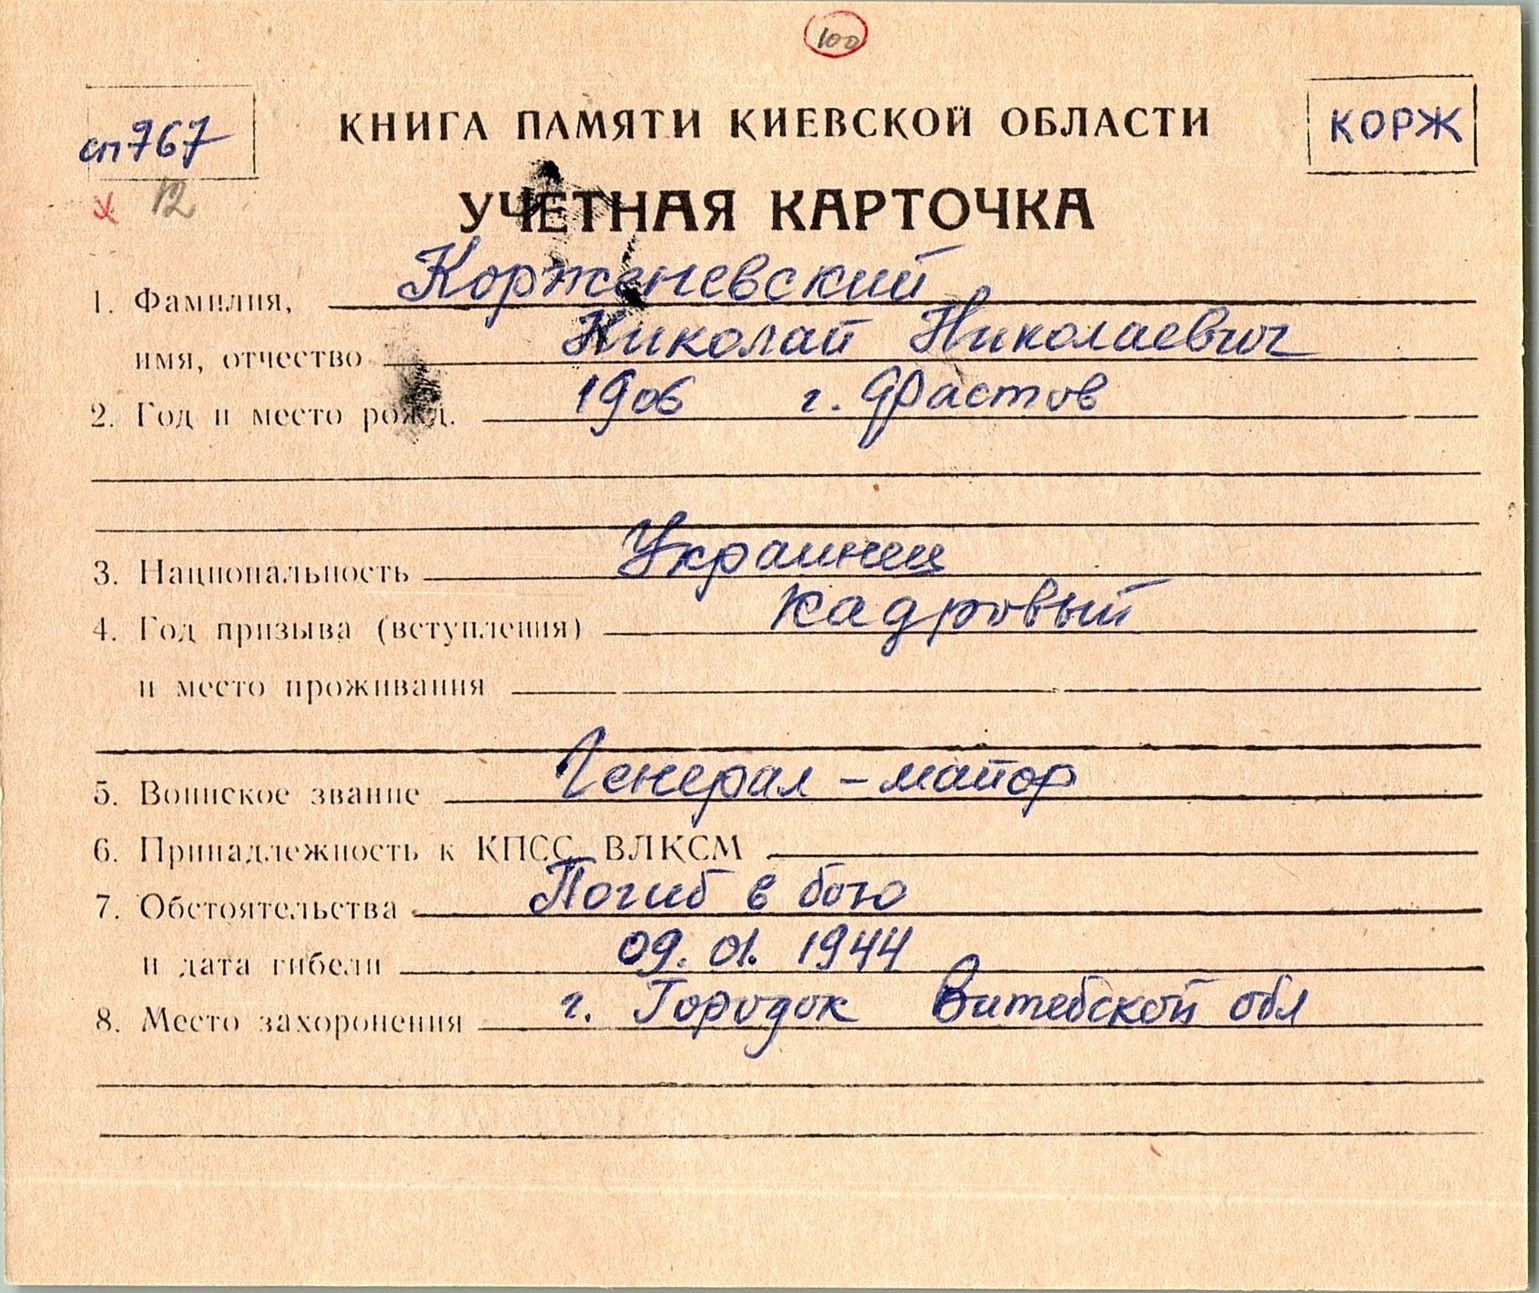 100
сп767
КНИГА ПАМЯТИ КИЕВСКОЙ ОБЛАСТИ
КОРЖ
х 12
УЧЕТНАЯ КАРТОЧКА
1. Фамилия, Корженевский
имя, отчество Николай Николаевич
2. Год и место рожд. 1906 г. Фастов
3. Национальность Украинец
4. Год призыва (вступления) кадровый
и место проживания
5. Воинское звание Генерал-майор
6. Принадлежность к КПСС, ВЛКСМ
7. Обстоятельства Погиб в бою
и дата гибели 09.01.1944
8. Место захоронения г. Городок Витебской обл